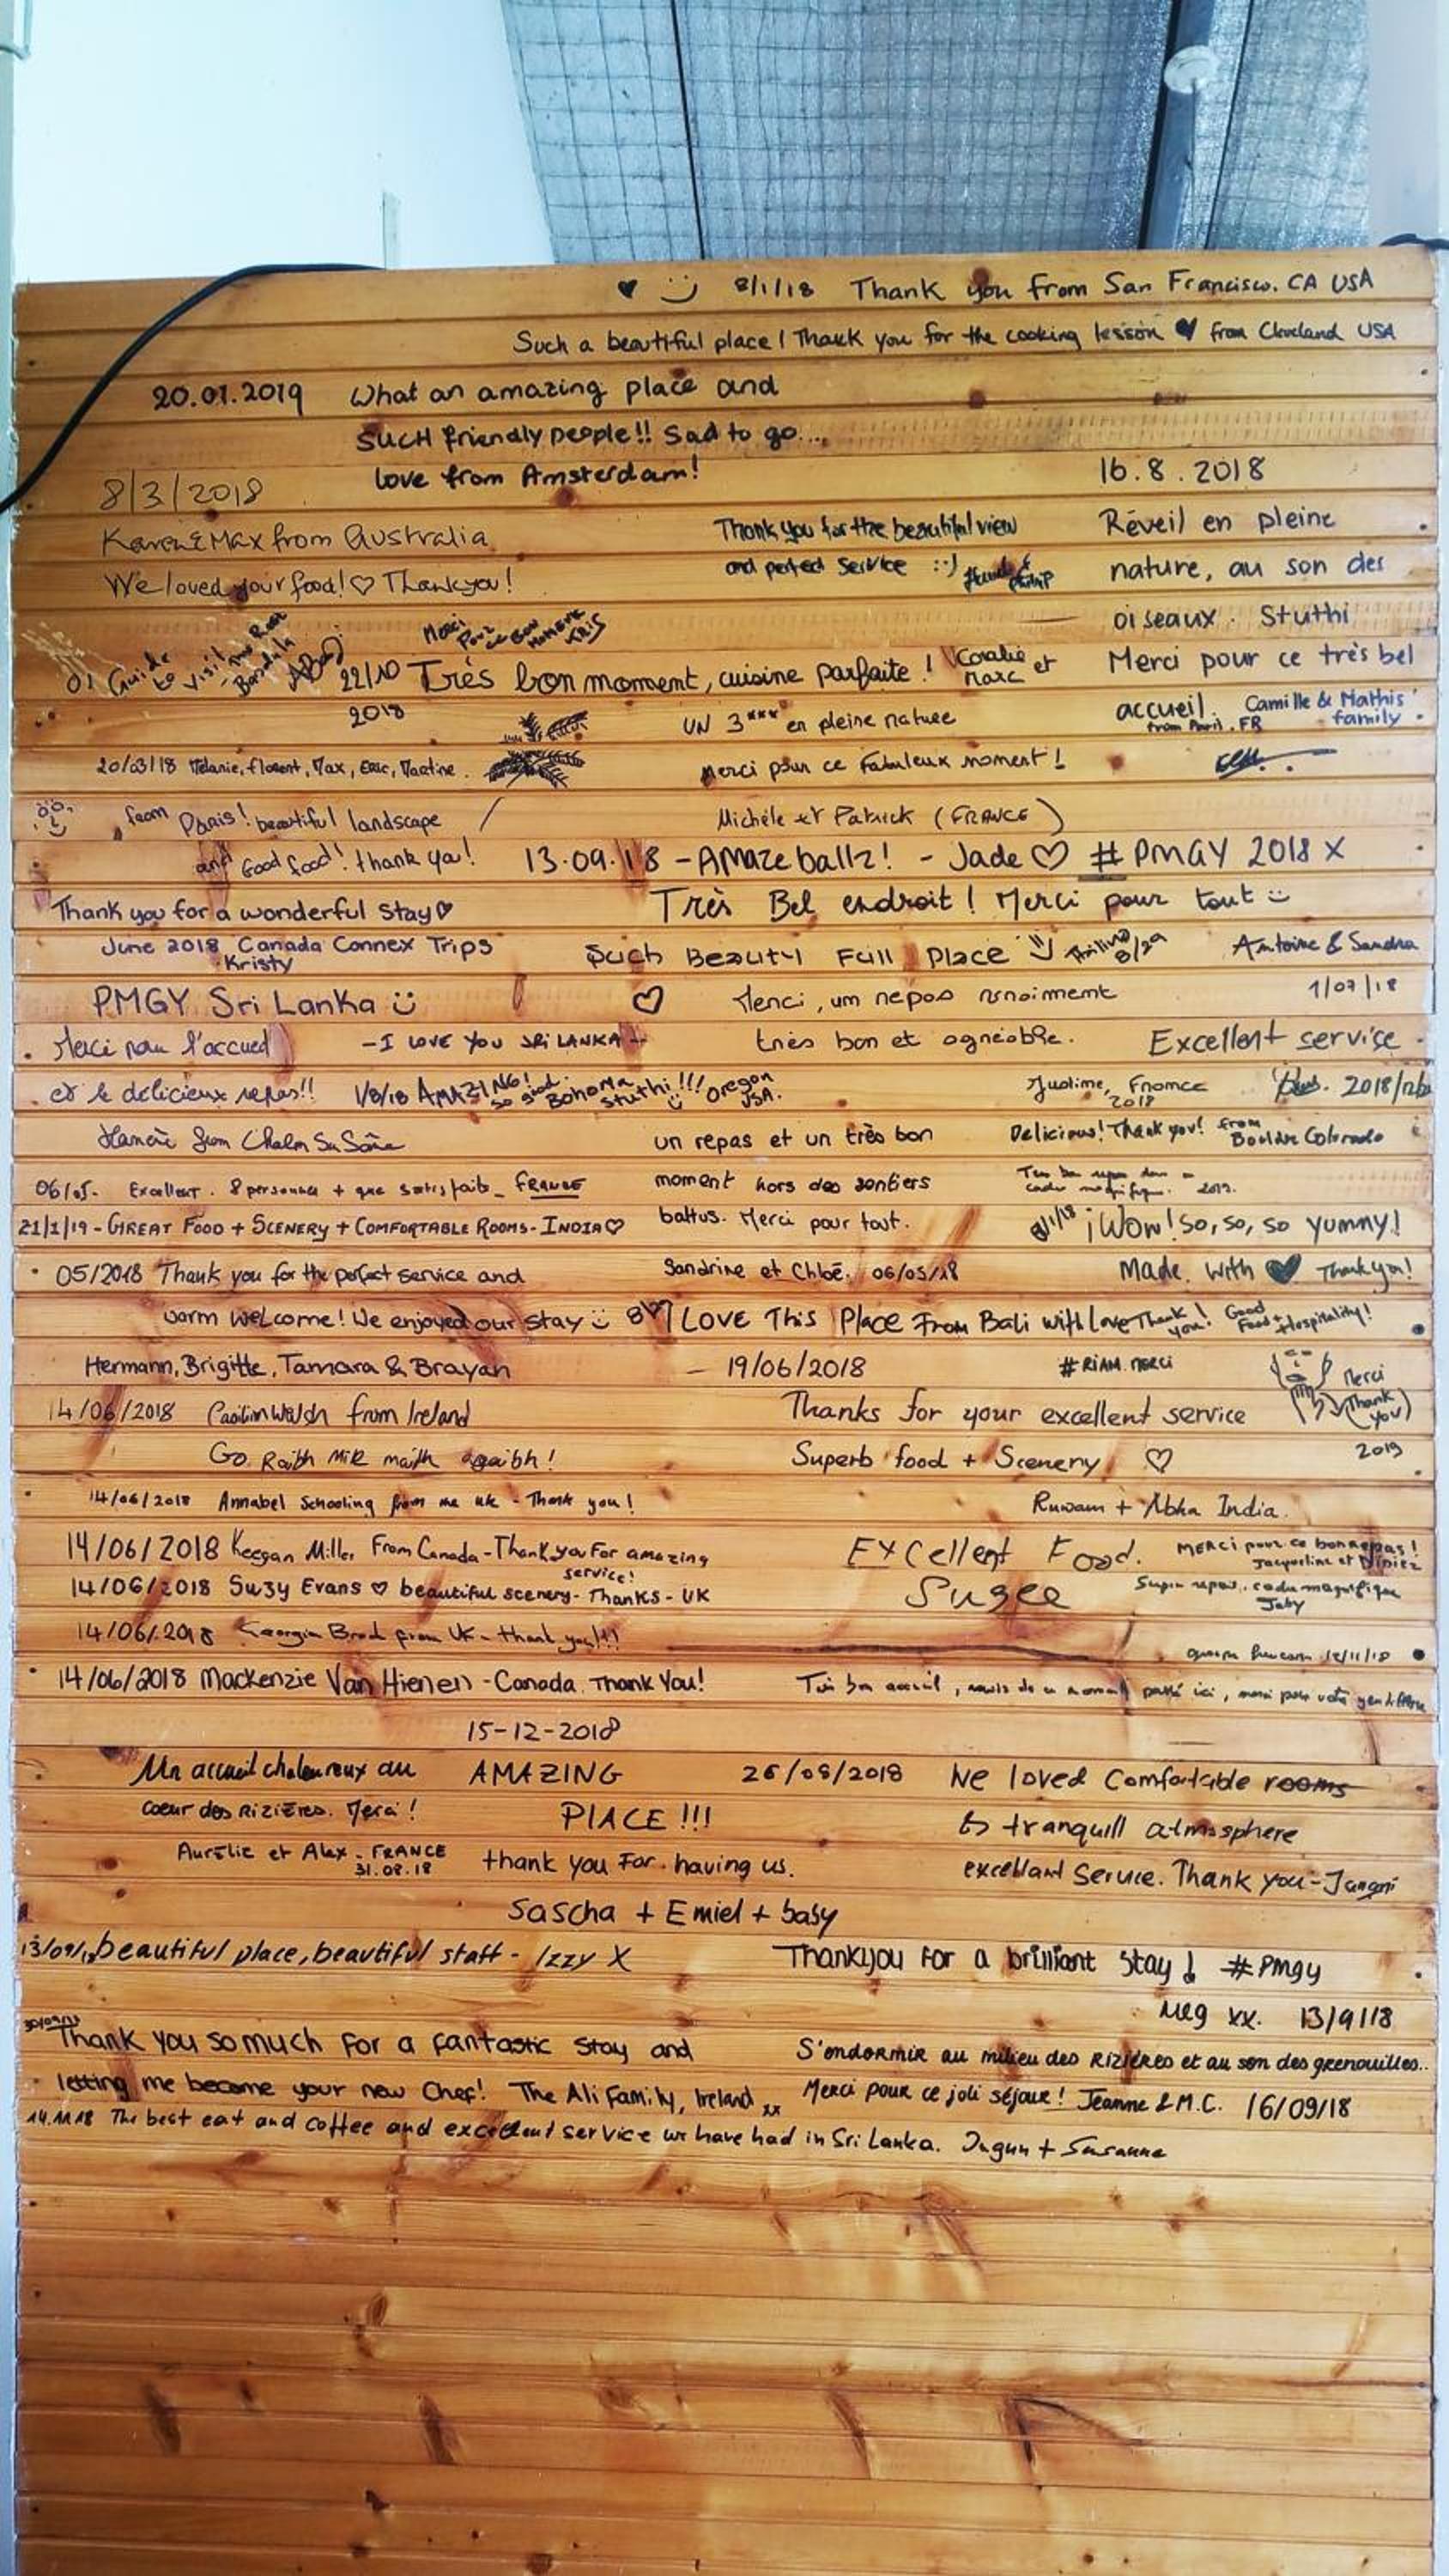 ♥ :) 8/1/18 Thank you from San Francisco. CA USA
Such a beautiful place! Thank you for the cooking lesson ♥ from Cleveland USA
20.01.2019 What an amazing place and
SUCH friendly people!! Sad to go...
love from Amsterdam!
8/3/2018
Karen & Max from Australia
We loved your food! ♡ Thankyou!
Thank you for the beautiful view
and perfect Service :-)
16.8.2018
Réveil en pleine
nature, au son des
oiseaux. Stuthi
Merci pour ce très bel
accueil. Camille & Mathis'
family
from Paris. FR
Guide
Merci
Pour
ce Bon
Moment
KRIS
22/10 Très bon moment, cuisine parfaite ! Coralie et
Marc
2018
UN 3*** en pleine nature
Merci pour ce Fabuleux moment !
Michèle et Patrick (FRANCE)
20/03/18 Mélanie, florent, Max, Eric, Martine.
from Paris! beautiful landscape
and Good food! thank you!
13.09.18 - AMAZEballz! - Jade ♡ #PMGY 2018 X
Thank you for a wonderful stay ♡
June 2018 Canada Connex Trips
Kristy
Très Bel endroit ! Merci pour tout :)
Antoine & Sandra
1/07/18
Such Beauty Full Place :) 8/29
PMGY Sri Lanka :)
♡ Merci, um repos vraiment
très bon et agréable.
Justine, France
2018
Excellent service.
2018/12/2
Merci pour l'accueil
et le délicieux repas!!
- I LOVE YOU SRI LANKA -
1/8/18 AMAZING! so good. Bohoma stuthi!!! Oregon
USA.
un repas et un très bon
moment hors des sentiers
battus. Merci pour tout.
Sandrine et Chloé. 06/05/18
Delicious! Thank you! from
Boulder Colorado
06/05. Excellent. 8 personnes + que satisfaits - FRANCE
2019.
21/1/19 - GREAT FOOD + SCENERY + COMFORTABLE ROOMS - INDIA ♡
¡Wow! so, so, so yummy!
Made with ♥ Thank you!
05/2018 Thank you for the perfect service and
warm welcome! We enjoyed our stay :)
Hermann, Brigitte, Tamara & Brayan
I LOVE This Place From Bali with Love Thank
you! Good
Food + Hospitality!
19/06/2018
Thanks for your excellent service
Superb food + Scenery ♡
Abha India.
#RIAM.MERCI
Merci
(Thank
you)
2019
14/06/2018 Caoilinn Walsh from Ireland
Go Raibh Míle maith agaibh!
14/06/2018 Annabel Schooling from the UK - Thank you!
14/06/2018 Keegan Miller From Canada - Thank you For amazing
service!
14/06/2018 Suzy Evans ♡ beautiful scenery - Thanks - UK
14/06/2018 Georgia from UK - thank you!!!
14/06/2018 Mackenzie Van Hienen - Canada. Thank You!
Excellent Food.
Susee
MERCI pour ce bon Repas!
Jacqueline et Didier
Super repas, cadre magnifique
Jaby
Très bon accueil, ravis de ce moment passé ici, merci pour votre gentillesse
Un accueil chaleureux au
coeur des Rizières. Merci !
Aurélie et Alex - FRANCE
31.08.18
15-12-2018
AMAZING
PLACE !!!
thank you For having us.
Sascha + Emiel + baby
26/08/2018 We loved Comfortable rooms
tranquill atmosphere
excellant Service. Thank you - Jangmi
beautiful place, beautiful staff - Izzy X
Thankyou For a brilliant stay! #Pmgy
Meg xx. 13/9/18
Thank You so much For a fantastic stay and
letting me become your new Chef! The Ali Family, Ireland xx
S'endormir au milieu des Rizières et au son des grenouilles..
Merci pour ce joli séjour ! Jeanne & M.C. 16/09/18
14.11.18 The best eat and coffee and excellent service we have had in Sri Lanka. Susanne